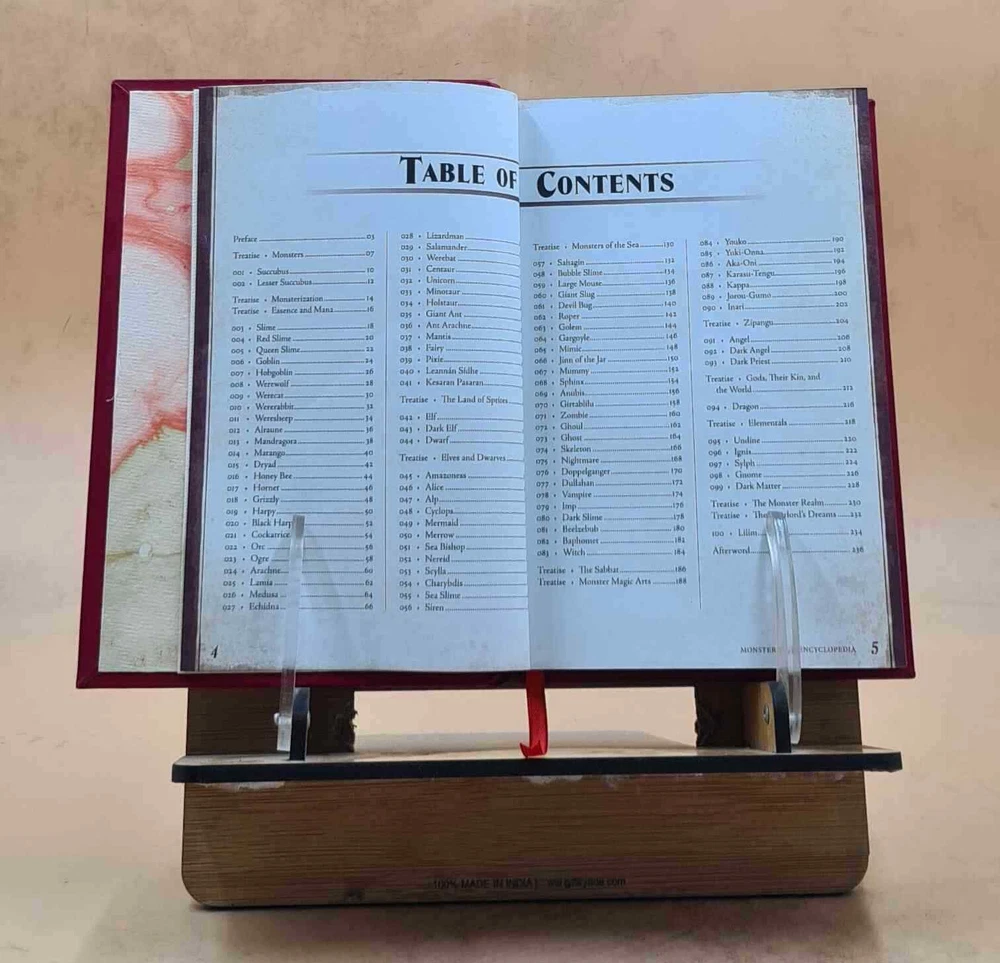 TABLE OF CONTENTS
Preface 05
Treatise • Monsters 07
001 • Succubus 10
002 • Lesser Succubus 12
Treatise • Monsterization 14
Treatise • Essence and Mana 16
003 • Slime 18
004 • Red Slime 20
005 • Queen Slime 22
006 • Goblin 24
007 • Hobgoblin 26
008 • Werewolf 28
009 • Werecat 30
010 • Wererabbit 32
011 • Weresheep 34
012 • Alraune 36
013 • Mandragora 38
014 • Matango 40
015 • Dryad 42
016 • Honey Bee 44
017 • Hornet 46
018 • Grizzly 48
019 • Harpy 50
020 • Black Harpy 52
021 • Cockatrice 54
022 • Orc 56
023 • Ogre 58
024 • Arachne 60
025 • Lamia 62
026 • Medusa 64
027 • Echidna 66
028 • Lizardman
029 • Salamander
030 • Werebat
031 • Centaur
032 • Unicorn
033 • Minotaur
034 • Holstaur
035 • Giant Ant
036 • Ant Arachne
037 • Mantis
038 • Fairy
039 • Pixie
040 • Leannán Sídhe
041 • Kesaran Pasaran
Treatise • The Land of Sprites
042 • Elf
043 • Dark Elf
044 • Dwarf
Treatise • Elves and Dwarves
045 • Amazoness
046 • Alice
047 • Alp
048 • Cyclops
049 • Mermaid
050 • Merrow
051 • Sea Bishop
052 • Nereid
053 • Scylla
054 • Charybdis
055 • Sea Slime
056 • Siren
4
Treatise • Monsters of the Sea 130
057 • Sahagin 132
058 • Bubble Slime 134
059 • Large Mouse 136
060 • Giant Slug 138
061 • Devil Bug 140
062 • Roper 142
063 • Golem 144
064 • Gargoyle 146
065 • Mimic 148
066 • Jinn of the Jar 150
067 • Mummy 152
068 • Sphinx 154
069 • Anubis 156
070 • Girtablilu 158
071 • Zombie 160
072 • Ghoul 162
073 • Ghost 164
074 • Skeleton 166
075 • Nightmare 168
076 • Doppelganger 170
077 • Dullahan 172
078 • Vampire 174
079 • Imp 176
080 • Dark Slime 178
081 • Beelzebub 180
082 • Baphomet 182
083 • Witch 184
Treatise • The Sabbat 186
Treatise • Monster Magic Arts 188
084 • Youko 190
085 • Yuki-Onna 192
086 • Aka-Oni 194
087 • Karasu-Tengu 196
088 • Kappa 198
089 • Jorou-Gumo 200
090 • Inari 202
Treatise • Zipangu 204
091 • Angel 206
092 • Dark Angel 208
093 • Dark Priest 210
Treatise • Gods, Their Kin, and
the World 212
094 • Dragon 216
Treatise • Elementals 218
095 • Undine 220
096 • Ignis 222
097 • Sylph 224
098 • Gnome 226
099 • Dark Matter 228
Treatise • The Monster Realm 230
Treatise • The lord's Dreams 232
100 • Lilim 234
Afterword 236
MONSTER ENCYCLOPEDIA 5
100% MADE IN INDIA |